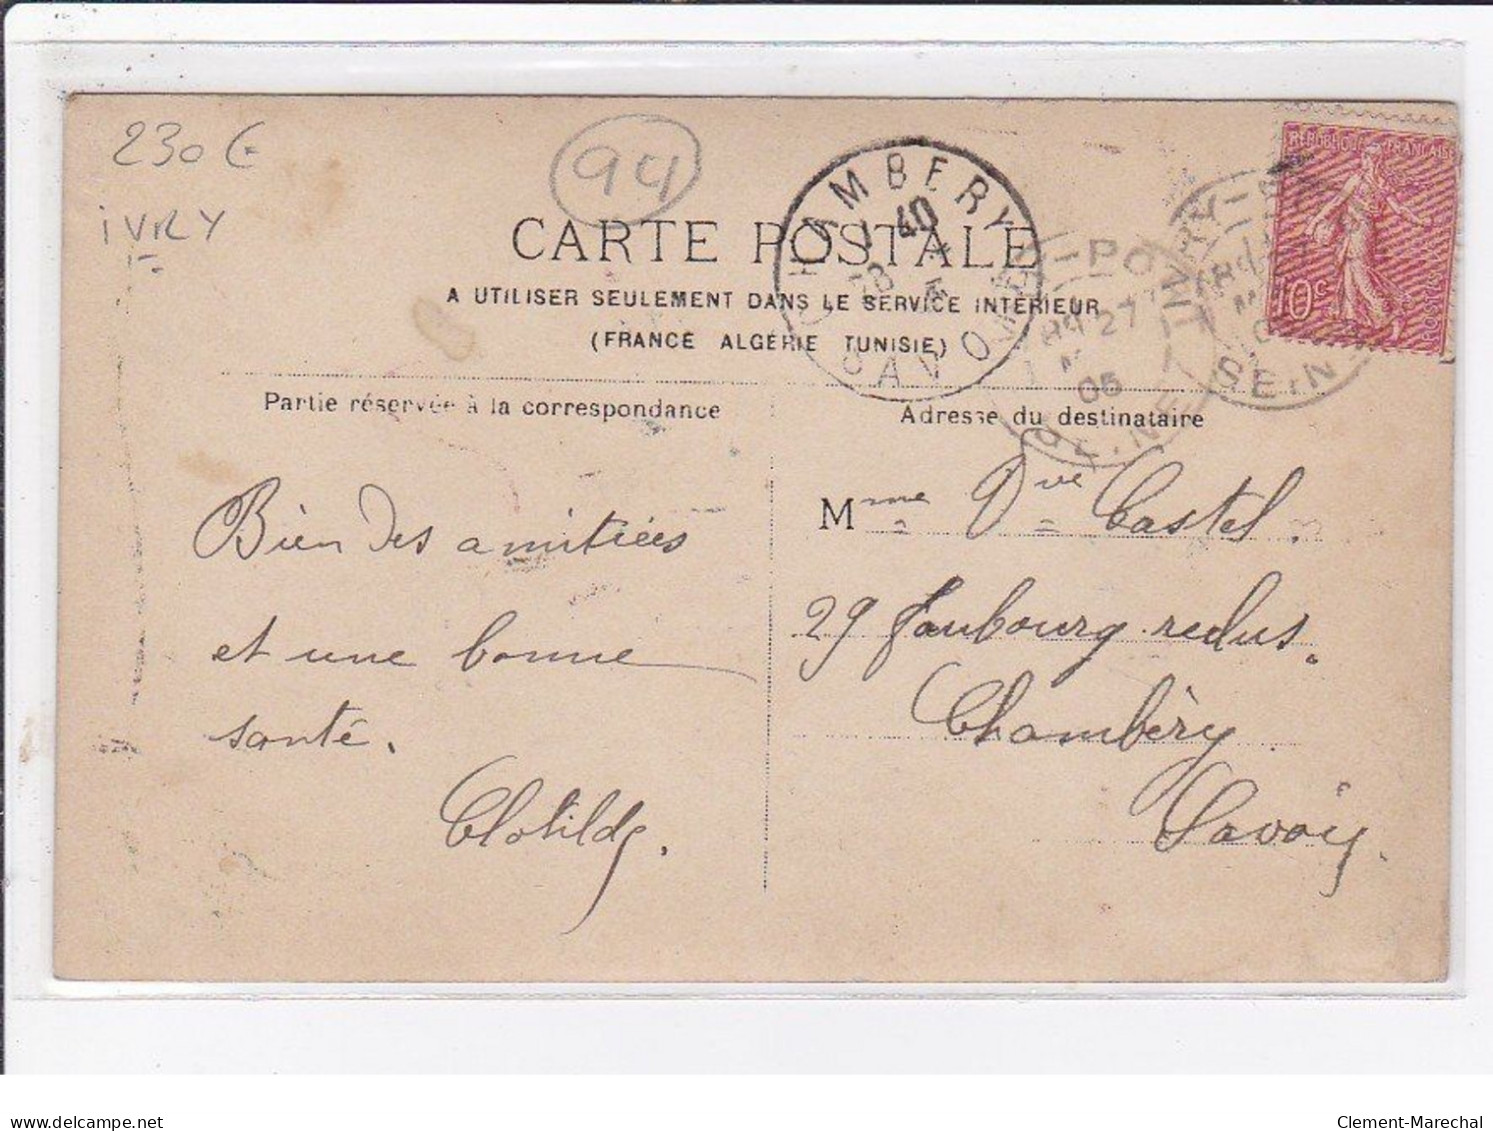 230 €
94
IVRY
REPUBLIQUE FRANÇAISE
10c
POSTES
CHAMBERY
SAVOIE
IVRY-PO
SEINE
27
05
CARTE POSTALE
A UTILISER SEULEMENT DANS LE SERVICE INTÉRIEUR
(FRANCE ALGÉRIE TUNISIE)
Partie réservée à la correspondance
Adresse du destinataire
Bien des amitiées
et une bonne
santé.
Clotilde.
Mme Vve Castel.
29 faubourg reclus.
Chambéry.
Savoie.
delcampe.net
Clement-Marechal